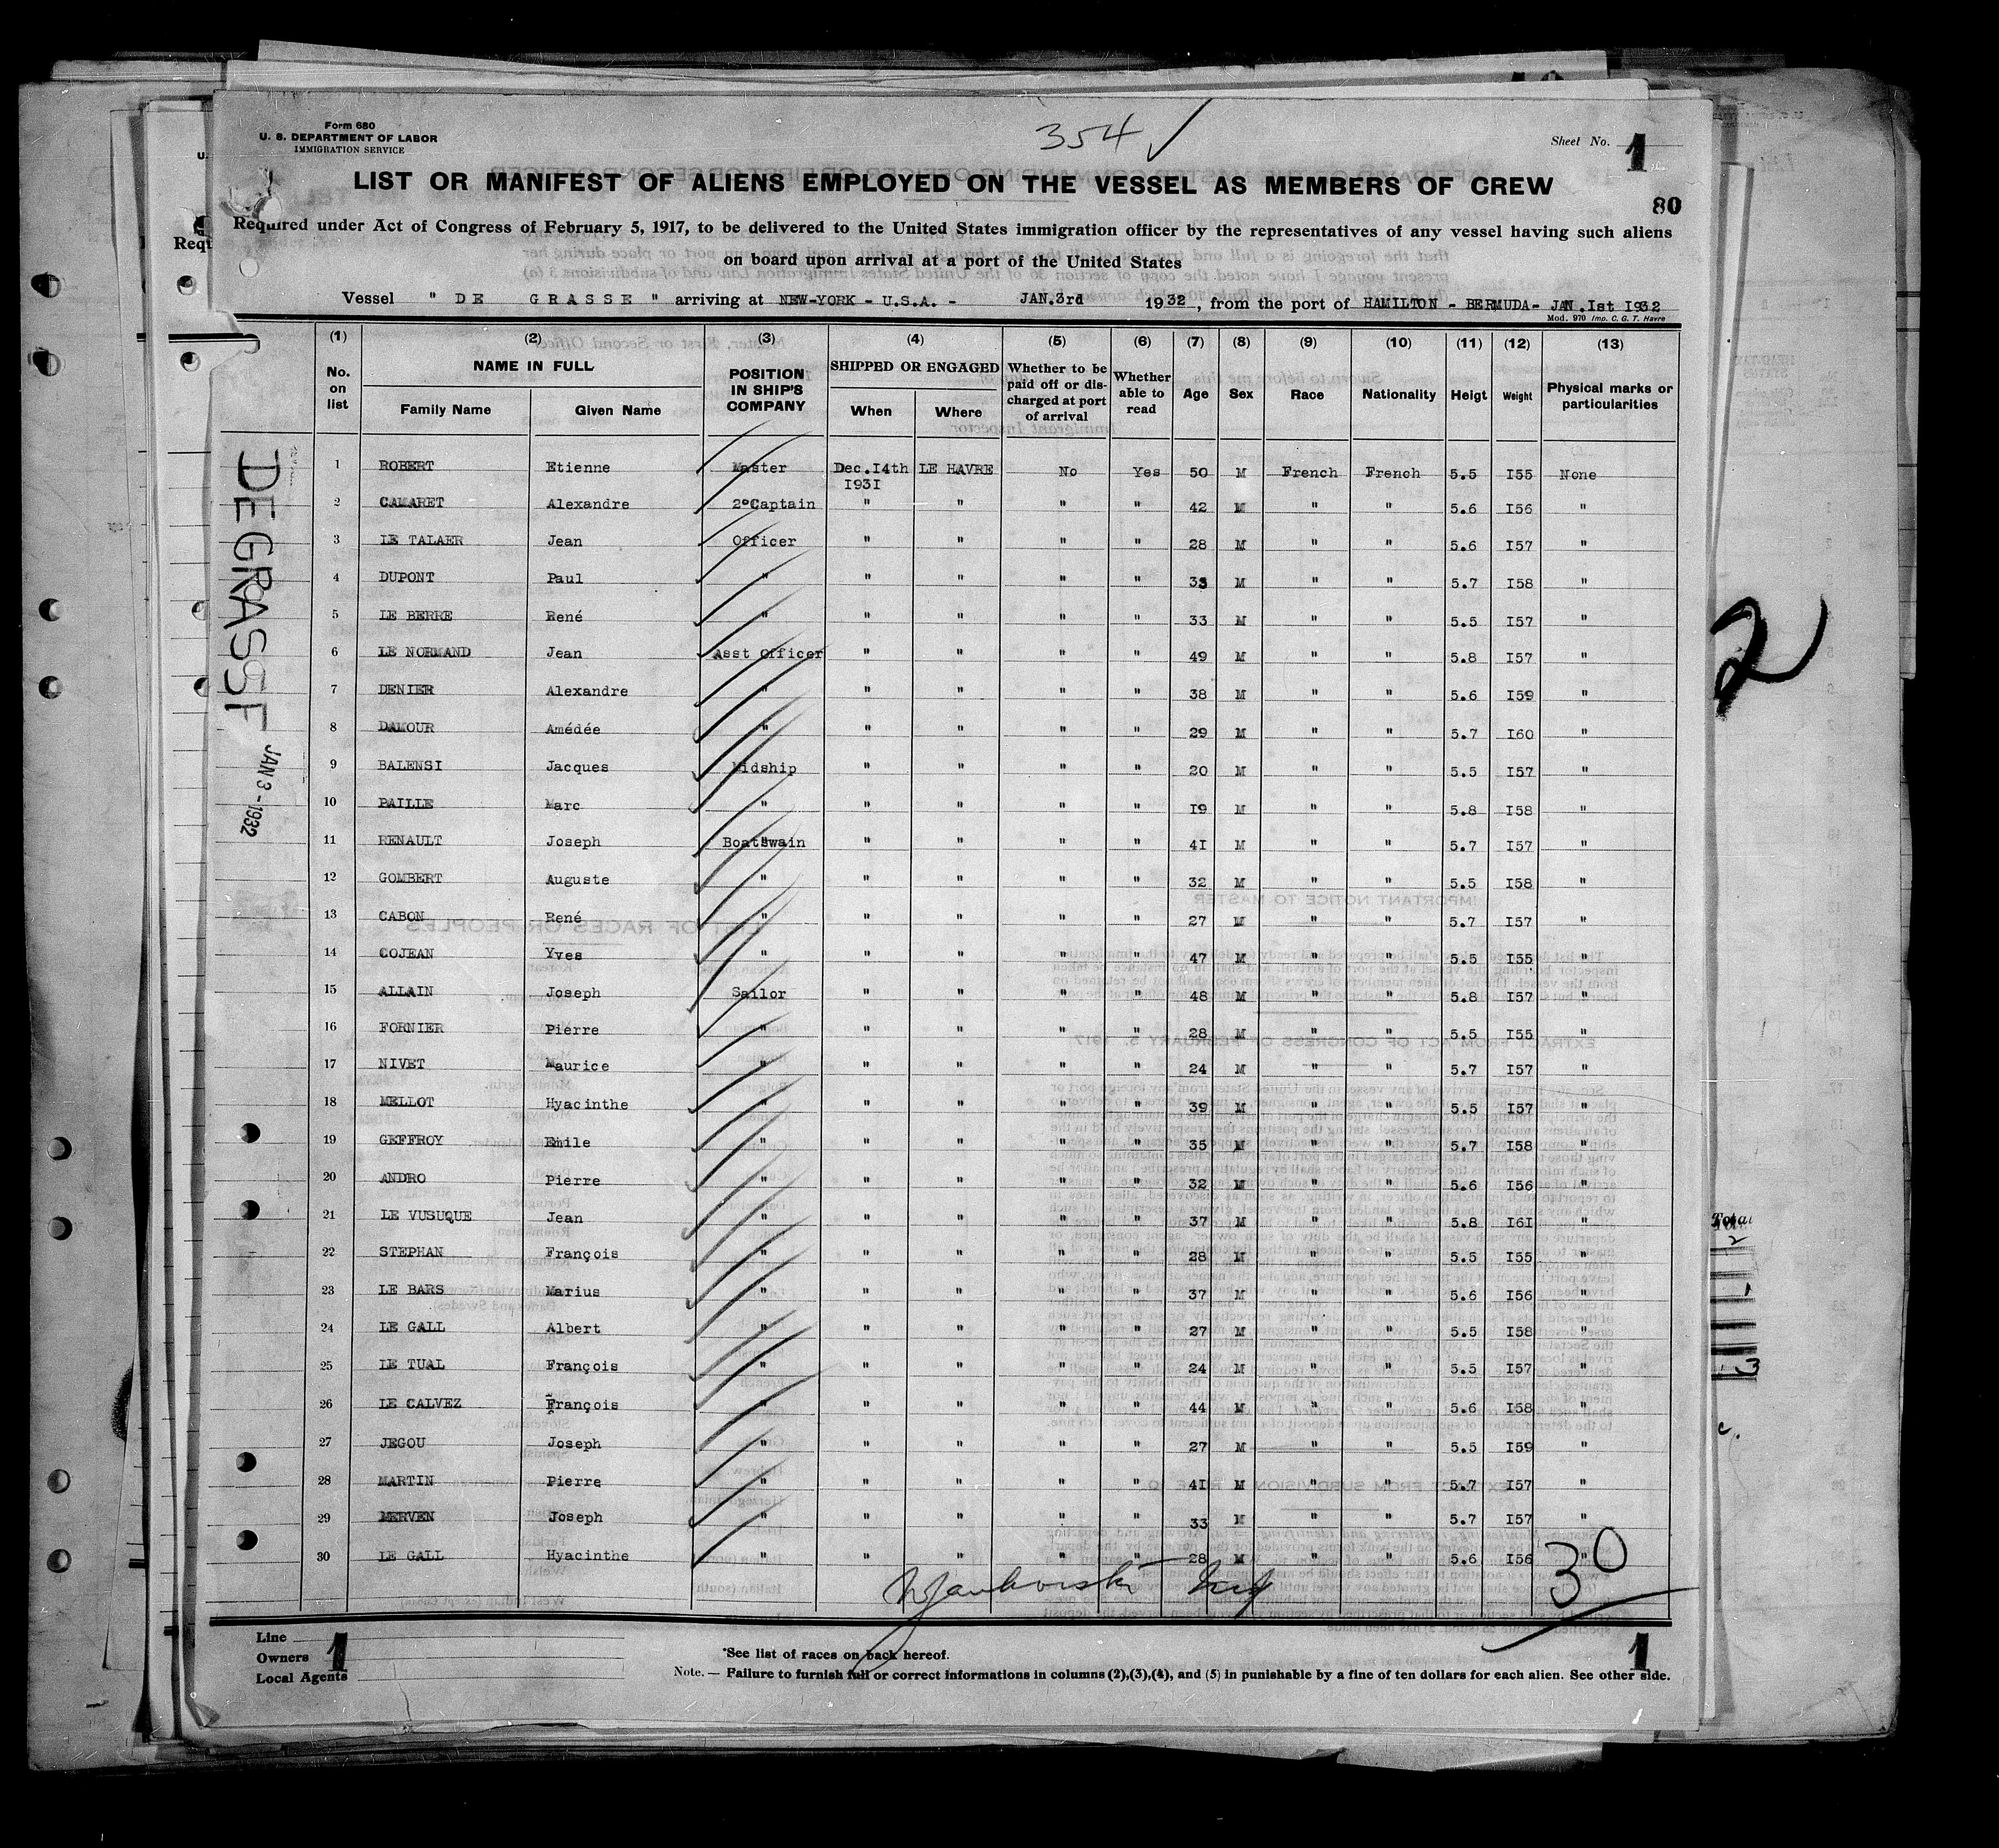 Form 680
U. S. DEPARTMENT OF LABOR
IMMIGRATION SERVICE
354
Sheet No. 1
LIST OR MANIFEST OF ALIENS EMPLOYED ON THE VESSEL AS MEMBERS OF CREW
80
Required under Act of Congress of February 5, 1917, to be delivered to the United States immigration officer by the representatives of any vessel having such aliens
on board upon arrival at a port of the United States
Vessel " DE GRASSE " arriving at NEW-YORK - U.S.A. - JAN.3rd 1932, from the port of HAMILTON - BERMUDA- JAN.Ist I932
Mod. 970 Imp. C. G. T. Havre
(1) (2) (3) (4) (5) (6) (7) (8) (9) (10) (11) (12) (13)
No. on list NAME IN FULL Family Name Given Name POSITION IN SHIP'S COMPANY SHIPPED OR ENGAGED When Where Whether to be paid off or discharged at port of arrival Whether able to read Age Sex Race Nationality Heigt Weight Physical marks or particularities
1 ROBERT Etienne Master Dec.I4th I93I LE HAVRE No Yes 50 M French French 5.5 I55 None
2 CAMARET Alexandre 2°Captain " " " " 42 M " " 5.6 I56 "
3 LE TALAER Jean Officer " " " " 28 M " " 5.6 I57 "
4 DUPONT Paul " " " " " 33 M " " 5.7 I58 "
5 LE BERRE René " " " " " 33 M " " 5.5 I57 "
6 LE NORMAND Jean Asst Officer " " " " 49 M " " 5.8 I57 "
7 DENIER Alexandre " " " " " 38 M " " 5.6 I59 "
8 DAMOUR Amédée " " " " " 29 M " " 5.7 I60 "
9 BALENSI Jacques Midship " " " " 20 M " " 5.5 I57 "
10 PAILLE Marc " " " " " I9 M " " 5.8 I58 "
11 RENAULT Joseph Boatswain " " " " 4I M " " 5.7 I57 "
12 GOMBERT Auguste " " " " " 32 M " " 5.5 I58 "
13 CABON René " " " " " 27 M " " 5.7 I57 "
14 COJEAN Yves " " " " " 47 M " " 5.5 I55 "
15 ALLAIN Joseph Sailor " " " " 48 M " " 5.8 I57 "
16 FORNIER Pierre " " " " " 28 M " " 5.5 I55 "
17 NIVET Maurice " " " " " 24 M " " 5.7 I57 "
18 MELLOT Hyacinthe " " " " " 39 M " " 5.5 I57 "
19 GEFFROY Emile " " " " " 35 M " " 5.7 I58 "
20 ANDRO Pierre " " " " " 32 M " " 5.6 I56 "
21 LE VUSUQUE Jean " " " " " 37 M " " 5.8 I6I "
22 STEPHAN François " " " " " 28 M " " 5.5 I55 "
23 LE BARS Marius " " " " " 37 M " " 5.6 I56 "
24 LE GALL Albert " " " " " 27 M " " 5.5 I58 "
25 LE TUAL François " " " " " 24 M " " 5.5 I57 "
26 LE CALVEZ François " " " " " 44 M " " 5.6 I58 "
27 JEGOU Joseph " " " " " 27 M " " 5.5 I59 "
28 MARTIN Pierre " " " " " 4I M " " 5.7 I57 "
29 MERVEN Joseph " " " " " 33 M " " 5.7 I57 "
30 LE GALL Hyacinthe " " " " " 28 M " " 5.6 I56 "
30
Line
Owners 1
Local Agents
*See list of races on back hereof.
1
Note. — Failure to furnish full or correct informations in columns (2),(3),(4), and (5) in punishable by a fine of ten dollars for each alien. See other side.
DE GRASSE
JAN 3 - 1932
2
Total